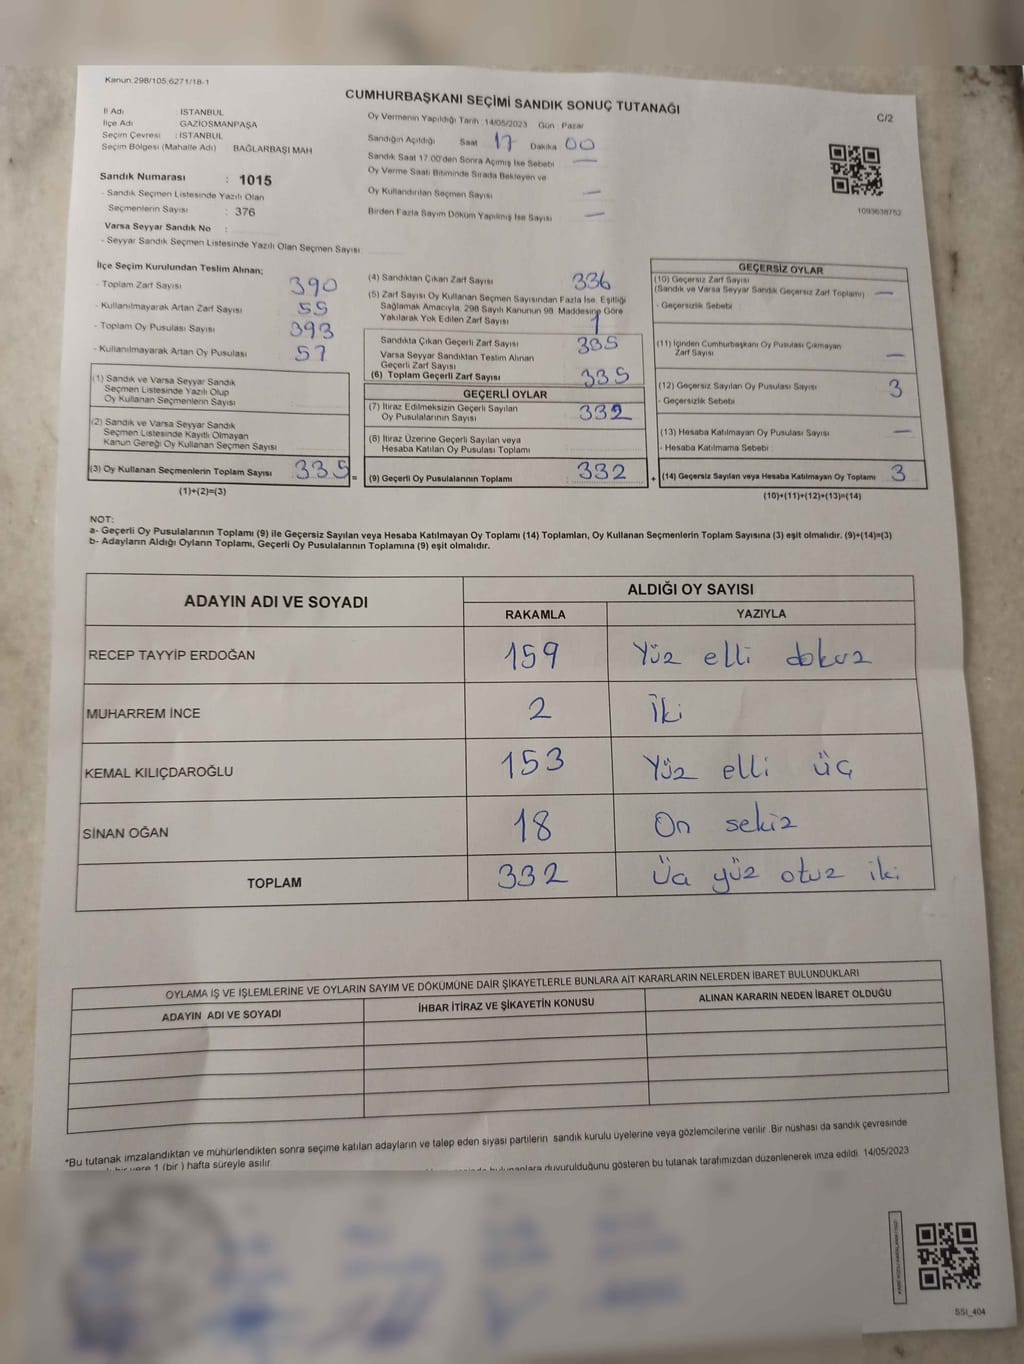 Kanun.298/105,6271/18-1
CUMHURBAŞKANI SEÇİMİ SANDIK SONUÇ TUTANAĞI
C/2
İl Adı : İSTANBUL
İlçe Adı : GAZİOSMANPAŞA
Seçim Çevresi : İSTANBUL
Seçim Bölgesi (Mahalle Adı) BAĞLARBAŞI MAH
Sandık Numarası : 1015
- Sandık Seçmen Listesinde Yazılı Olan
Seçmenlerin Sayısı : 376
Varsa Seyyar Sandık No :
- Seyyar Sandık Seçmen Listesinde Yazılı Olan Seçmen Sayısı
Oy Vermenin Yapıldığı Tarih :14/05/2023 Gün Pazar
Sandığın Açıldığı Saat 17 Dakika 00
Sandık Saat 17.00'den Sonra Açımış İse Sebebi —
Oy Verme Saati Bitiminde Sırada Bekleyen ve
Oy Kullandırılan Seçmen Sayısı —
Birden Fazla Sayım Döküm Yapılmış İse Sayısı —
1093638752
İlçe Seçim Kurulundan Teslim Alınan;
- Toplam Zarf Sayısı 390
- Kullanılmayarak Artan Zarf Sayısı 55
- Toplam Oy Pusulası Sayısı 393
- Kullanılmayarak Artan Oy Pusulası 57
(1) Sandık ve Varsa Seyyar Sandık
Seçmen Listesinde Yazılı Olup
Oy Kullanan Seçmenlerin Sayısı
(2) Sandık ve Varsa Seyyar Sandık
Seçmen Listesinde Kayıtlı Olmayan
Kanun Gereği Oy Kullanan Seçmen Sayısı
(3) Oy Kullanan Seçmenlerin Toplam Sayısı 335 =
(1)+(2)=(3)
(4) Sandıktan Çıkan Zarf Sayısı 336
(5) Zarf Sayısı Oy Kullanan Seçmen Sayısından Fazla İse, Eşitliği
Sağlamak Amacıyla, 298 Sayılı Kanunun 98. Maddesine Göre
Yakılarak Yok Edilen Zarf Sayısı 1
Sandıkta Çıkan Geçerli Zarf Sayısı 335
Varsa Seyyar Sandıktan Teslim Alınan
Geçerli Zarf Sayısı
(6) Toplam Geçerli Zarf Sayısı 335
GEÇERLİ OYLAR
(7) İtiraz Edilmeksizin Geçerli Sayılan
Oy Pusulalarının Sayısı 332
(8) İtiraz Üzerine Geçerli Sayılan veya
Hesaba Katılan Oy Pusulası Toplamı
(9) Geçerli Oy Pusulalarının Toplamı 332 +
GEÇERSİZ OYLAR
(10) Geçersiz Zarf Sayısı
(Sandık ve Varsa Seyyar Sandık Geçersiz Zarf Toplamı) —
- Geçersizlik Sebebi
(11) İçinden Cumhurbaşkanı Oy Pusulası Çıkmayan
Zarf Sayısı —
(12) Geçersiz Sayılan Oy Pusulası Sayısı 3
- Geçersizlik Sebebi
(13) Hesaba Katılmayan Oy Pusulası Sayısı —
- Hesaba Katılmama Sebebi
(14) Geçersiz Sayılan veya Hesaba Katılmayan Oy Toplamı 3
(10)+(11)+(12)+(13)=(14)
NOT:
a- Geçerli Oy Pusulalarının Toplamı (9) ile Geçersiz Sayılan veya Hesaba Katılmayan Oy Toplamı (14) Toplamları, Oy Kullanan Seçmenlerin Toplam Sayısına (3) eşit olmalıdır. (9)+(14)=(3)
b- Adayların Aldığı Oyların Toplamı, Geçerli Oy Pusulalarının Toplamına (9) eşit olmalıdır.
ADAYIN ADI VE SOYADI
ALDIĞI OY SAYISI
RAKAMLA YAZIYLA
RECEP TAYYİP ERDOĞAN 159 Yüz elli dokuz
MUHARREM İNCE 2 İki
KEMAL KILIÇDAROĞLU 153 Yüz elli üç
SİNAN OĞAN 18 On sekiz
TOPLAM 332 Üç yüz otuz iki
OYLAMA İŞ VE İŞLEMLERİNE VE OYLARIN SAYIM VE DÖKÜMÜNE DAİR ŞİKAYETLERLE BUNLARA AİT KARARLARIN NELERDEN İBARET BULUNDUKLARI
ADAYIN ADI VE SOYADI İHBAR İTİRAZ VE ŞİKAYETİN KONUSU ALINAN KARARIN NEDEN İBARET OLDUĞU
*Bu tutanak imzalandıktan ve mühürlendikten sonra seçime katılan adayların ve talep eden siyasi partilerin sandık kurulu üyelerine veya gözlemcilerine verilir .Bir nüshası da sandık çevresinde
bir yere 1 (bir ) hafta süreyle asılır.
bulunanlara duyurulduğunu gösteren bu tutanak tarafımızdan düzenlenerek imza edildi. 14/05/2023
SSI_404